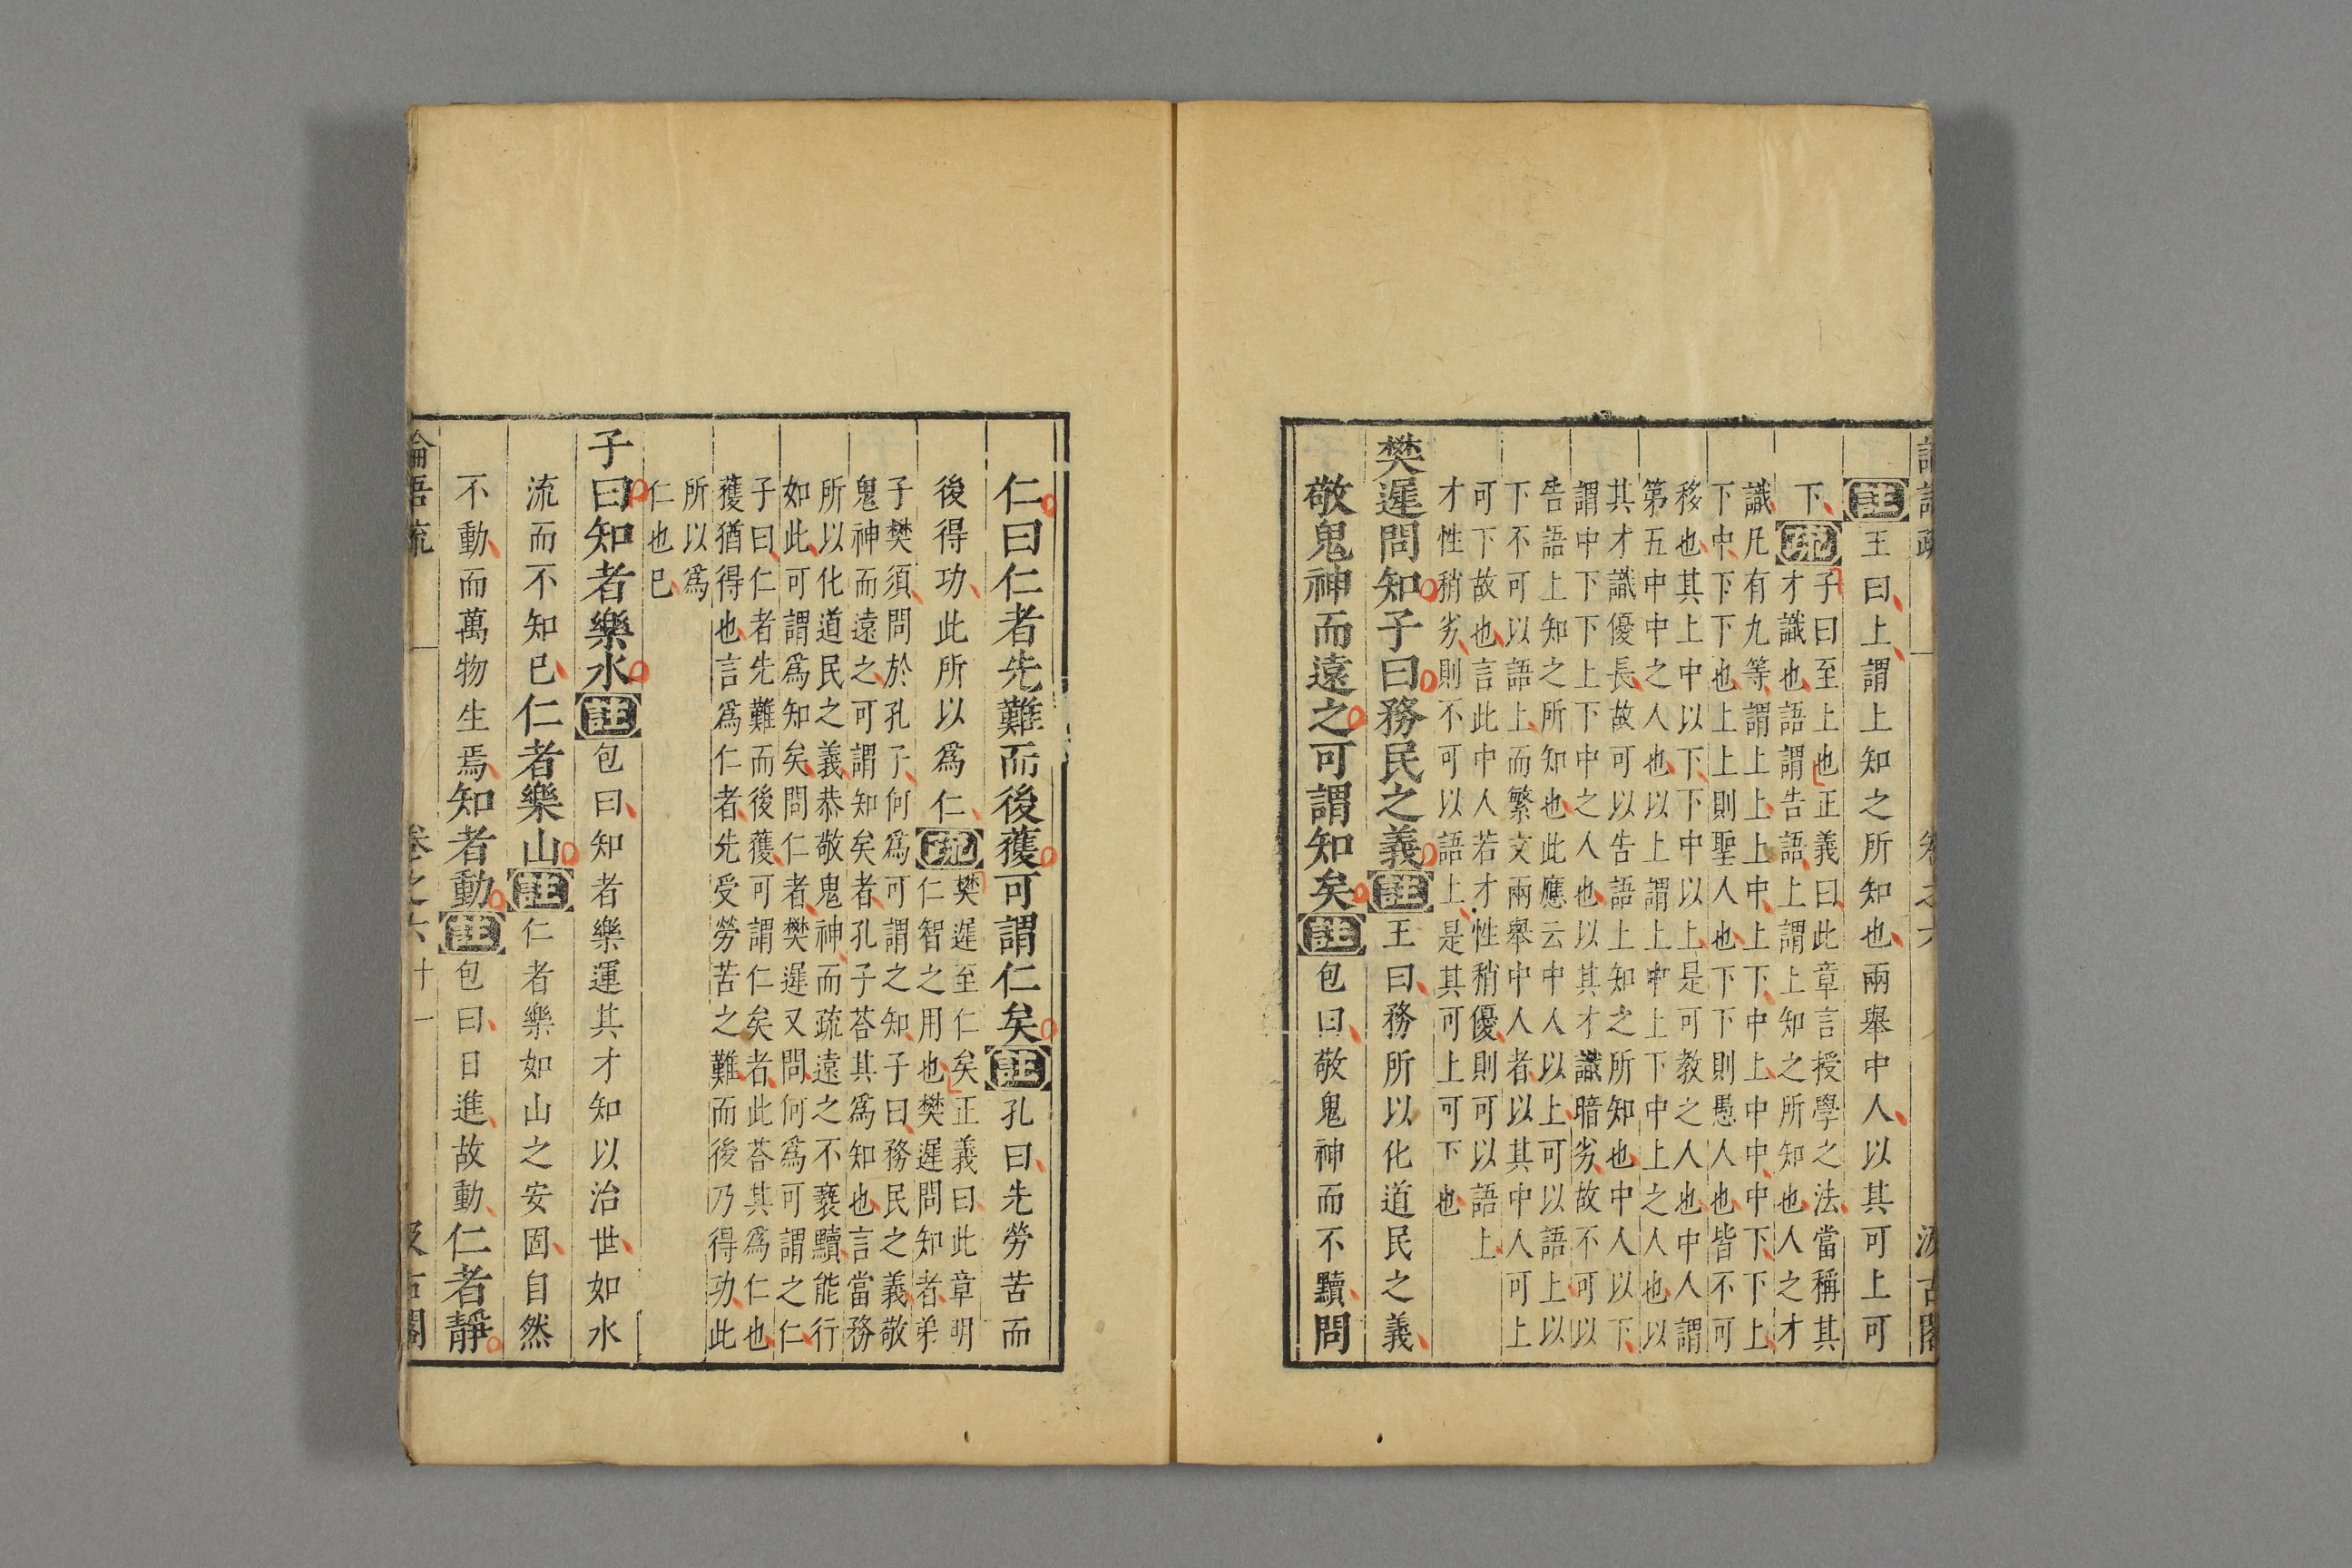 論語疏 卷之六 汲古閣
註王曰上謂上知之所知也兩舉中人以其可上可
下疏
子曰至上也正義曰此章言授學之法當稱其
才識也語謂告語上謂上知之所知也人之才
識凡有九等謂上上上中上下中上中中中下下上
下中下下也上上則聖人也下下則愚人也皆不可
移也其上中以下下中以上是可教之人也中人謂
第五中中之人也以上謂上中上下中上之人也以
其才識優長故可以告語上知之所知也中人以下
謂中下下上下中之人也以其才識暗劣故不可以
告語上知之所知也此應云中人以上可以語上以
下不可以語上而繁文兩舉中人者以其中人可上
可下故也言此中人若才性稍優則可以語上
才性稍劣則不可以語上是其可上可下也
樊遲問知子曰務民之義註王曰務所以化道民之義
敬鬼神而遠之可謂知矣註包曰敬鬼神而不黷問
仁曰仁者先難而後獲可謂仁矣註孔曰先勞苦而
後得功此所以爲仁疏
樊遲至仁矣正義曰此章明
仁智之用也樊遲問知者弟
子樊須問於孔子何爲可謂之知子曰務民之義敬
鬼神而遠之可謂知矣者孔子荅其爲知也言當務
所以化道民之義恭敬鬼神而疏遠之不褻黷能行
如此可謂爲知矣問仁者樊遲又問何爲可謂之仁
子曰仁者先難而後獲可謂仁矣者此荅其爲仁也
獲猶得也言爲仁者先受勞苦之難而後乃得功此
所以爲
仁也已
子曰知者樂水註包曰知者樂運其才知以治世如水
流而不知已仁者樂山註仁者樂如山之安固自然
不動而萬物生焉知者動註包曰日進故動仁者靜
論語疏 卷之六 十一 汲古閣